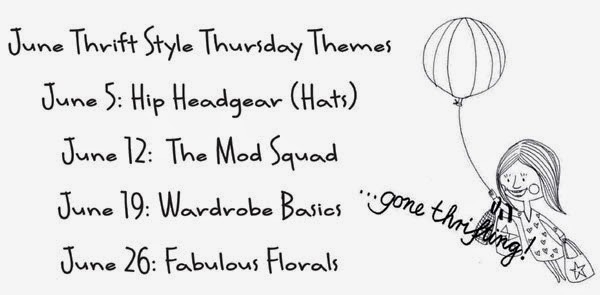 June Thrift Style Thursday Themes
June 5: Hip Headgear (Hats)
June 12: The Mod Squad
June 19: Wardrobe Basics
June 26: Fabulous Florals
...gone thrifting!